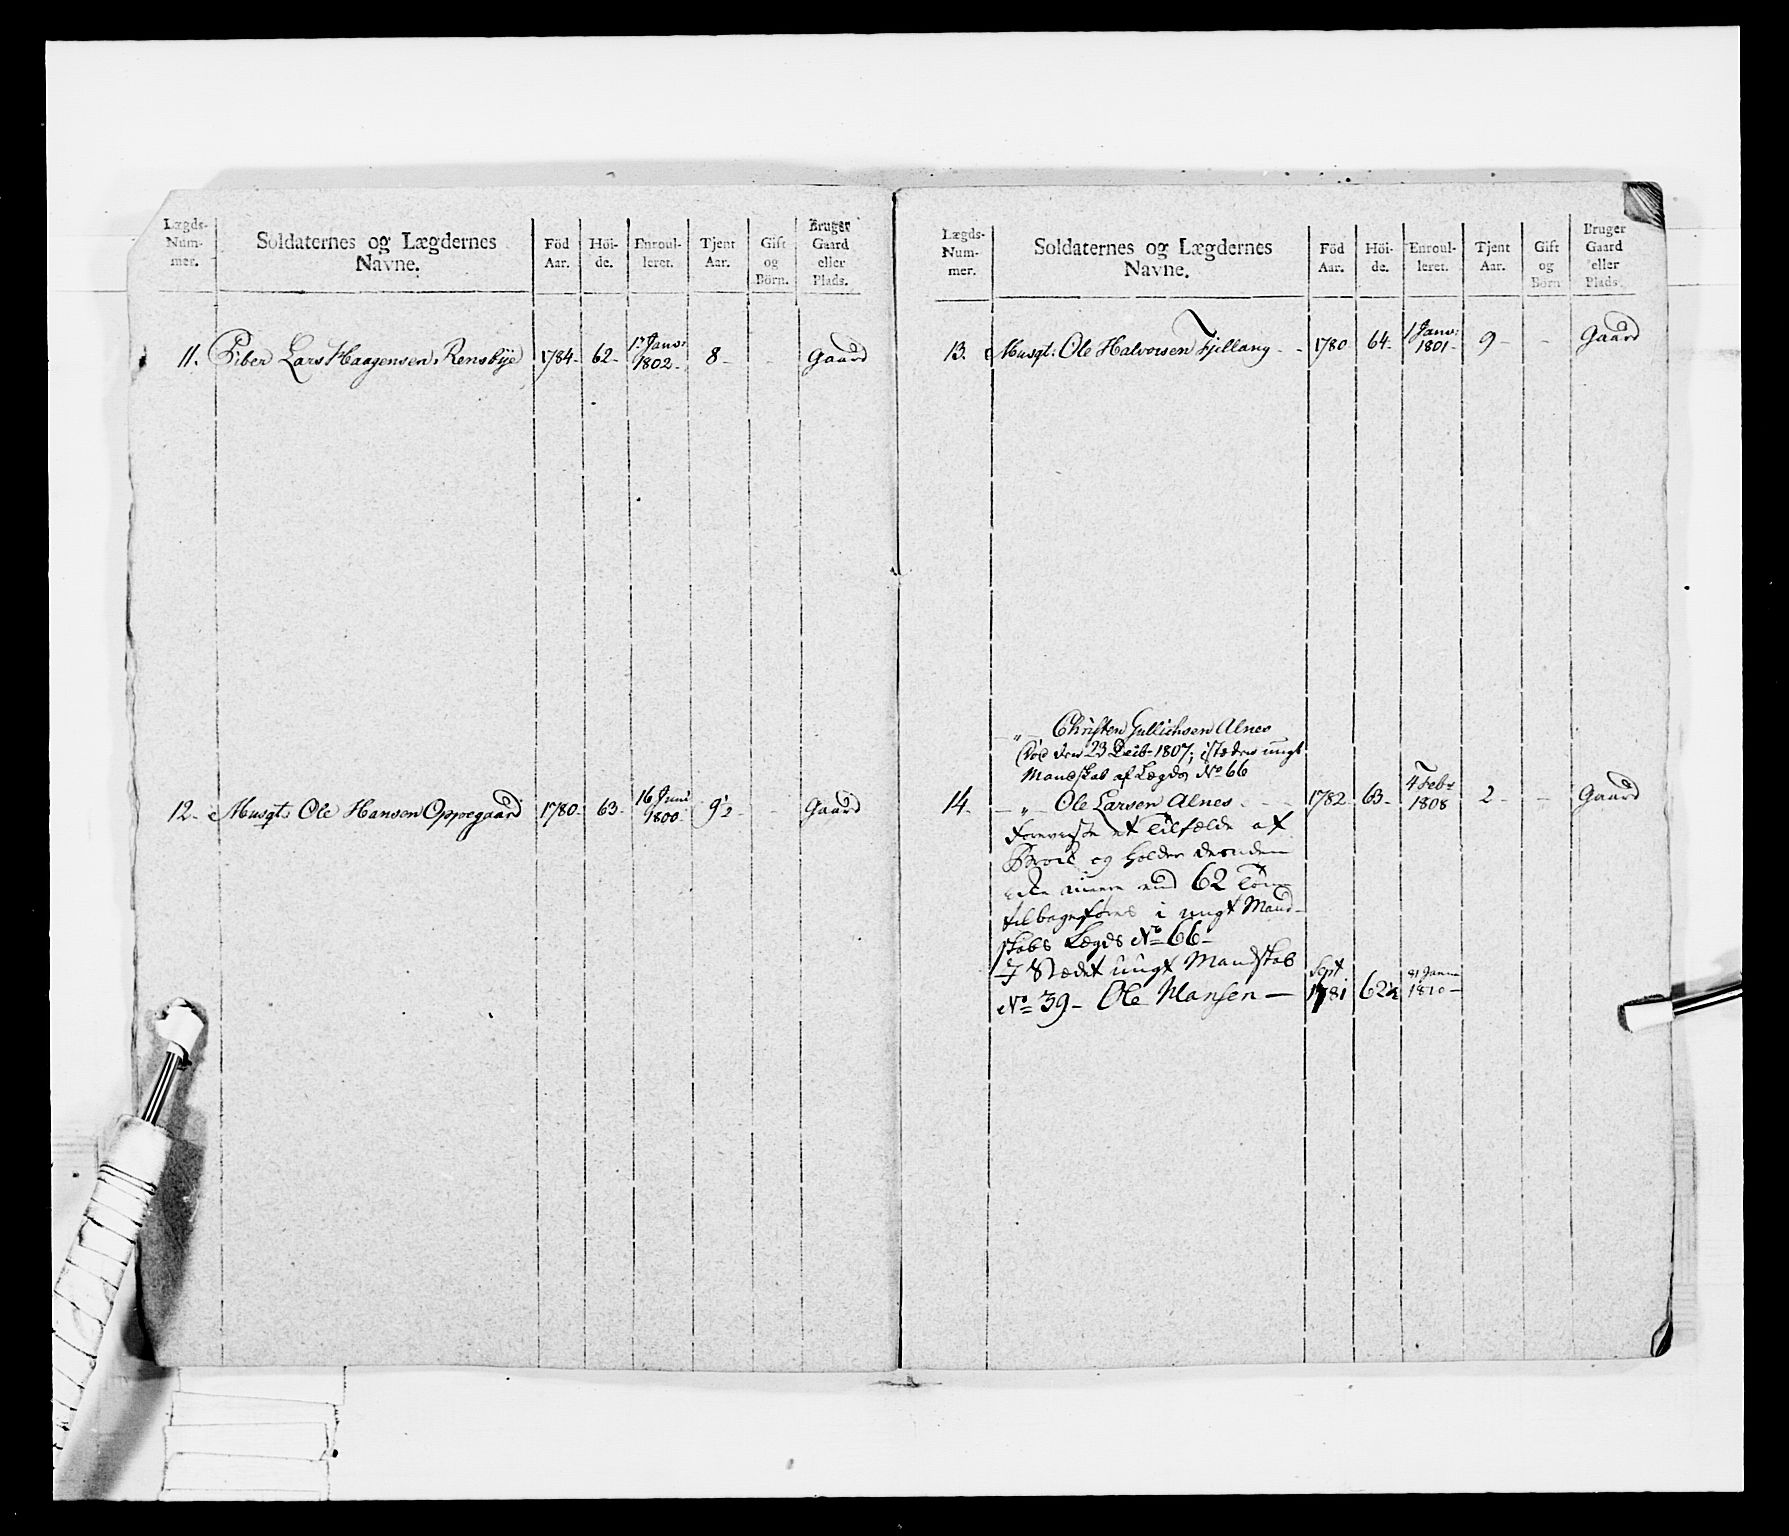 Lægds-Num-mer. | Soldaternes og Lægdernes Navne. | Föd Aar. | Höi-de. | Enroul-leret. | Tjent Aar. | Gift og Börn. | Bruger Gaard eller Plads.
11. Piber Lars Haagensen Rensbye 1784- 62- 1ste Janv: 1802- 8- - Gaard
12- Musqt: Ole Hansen Oppegaard 1780- 63- 16 Juni 1800- 9½- - Gaard
Lægds-Num-mer. | Soldaternes og Lægdernes Navne. | Föd Aar. | Höi-de. | Enroul-leret. | Tjent Aar. | Gift og Börn | Bruger Gaard eller Plads.
13. Musqt: Ole Halvorsen Fjellang - - 1780 64- 1 Janv: 1801- 9- - Gaard
— „ — Christen Gullichsen Alnes
død den 23 Decb 1807; istæden ungt
Mandskab af Lægds No 66
14. — „ — Ole Larsen Alnes - - - 1782- 63- 4 Febr 1808 2- - Gaard
et Tilfælde af
Brok og holder desuden
ikke mere end 62 Tom
tilbageføres i ungt Mand-
skabs Lægds No 66-
I Stædet ungt Mandskab
No 39- Ole Hansen — Sept 1781 62½ 31 Janu 1810-